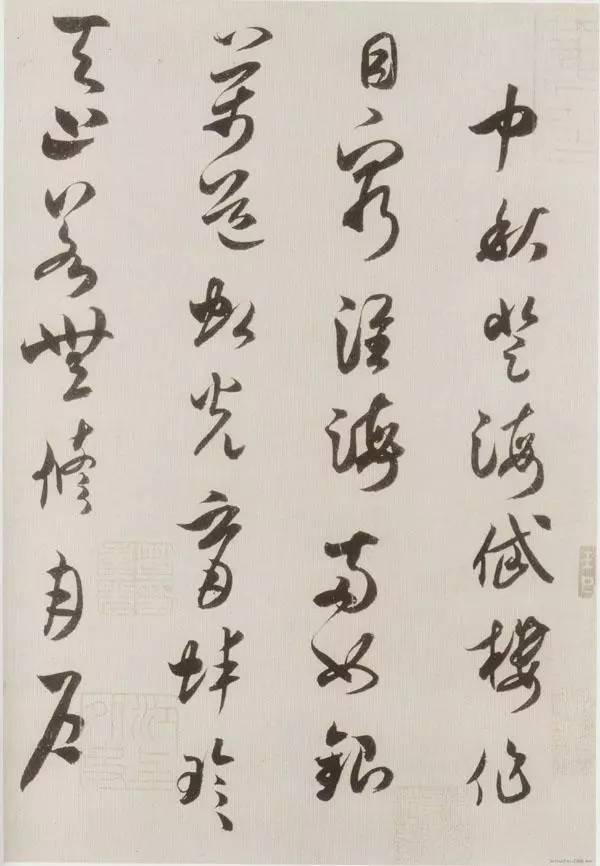 中秋登海岱樓作
目窮淮海兩如銀
萬道虹光育蚌珍
天上若無修月戶